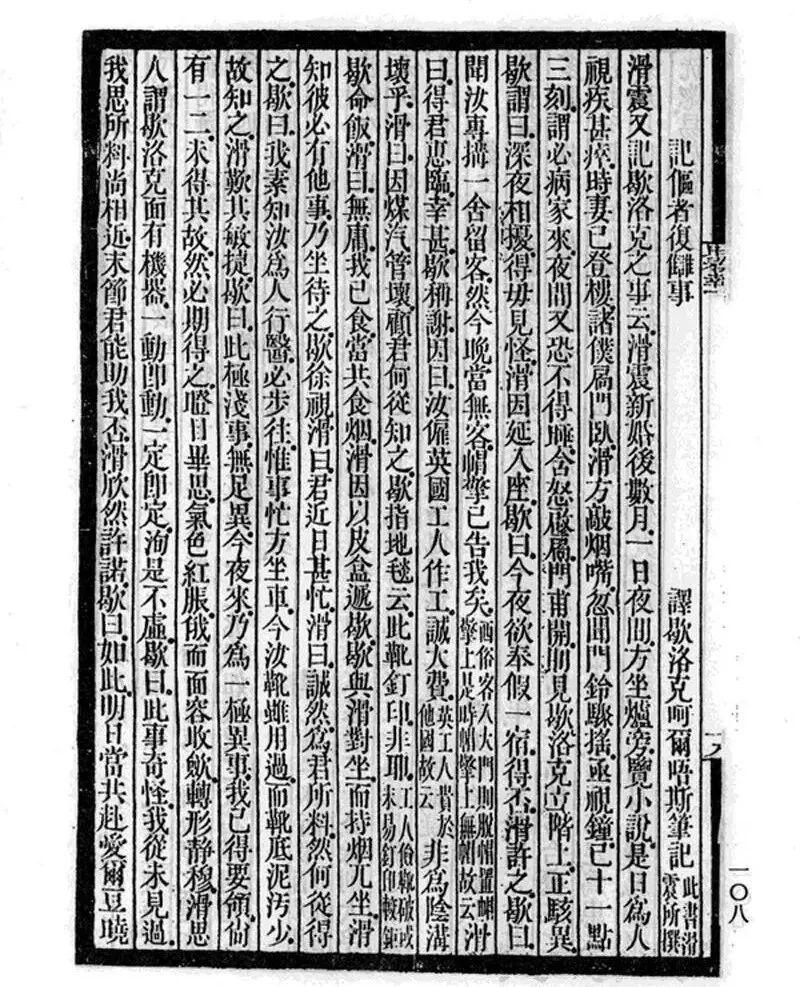 記傴者復讎事 譯歇洛克呵爾唔斯筆記 此書滑震所撰
滑震又記歇洛克之事云.滑震新婚後數月.一日夜間.方坐爐旁覽小說.是日為人
視疾甚瘁.時妻已登樓.諸僕扃門臥.滑方敲烟嘴.忽聞門鈴驟搖.亟視鐘.已十一點
三刻.謂必病家來.夜間又恐不得睡.含怒啟扃.門甫開.則見歇洛克立階上.正駭異.
歇謂曰.深夜相擾.得毋見怪.滑因延入座.歇曰.今夜欲奉假一宿.得否.滑許之.歇曰.
聞汝專搆一舍留客.然今晚當無客.帽擎已告我矣.西俗客入大門則脫帽置帽擎上是時帽擎上無帽故云滑
曰.得君惠臨.幸甚.歇稱謝.因曰.汝僱英國工人作工.誠大費.英工人費於他國故云非為陰溝
壞乎.滑曰.因煤汽管壞.顧君何從知之.歇指地毯云.此靴釘印.非耶.工人儉靴破或未易釘印較鉅
歇命飯.滑曰.無庸.我已食.當共食烟.滑因以皮盒遞歇.歇與滑對坐而持烟兀坐.滑
知彼必有他事.乃坐待之.歇徐視滑曰.君近日甚忙.滑曰.誠然.為君所料.然何從得
之.歇曰.我素知汝為人行醫.必步往.惟事忙方坐車.今汝靴雖用過.而靴底泥汚少.
故知之.滑歎其敏捷.歇曰.此極淺事.無足異.今夜來乃為一極異事.我已得要領.尚
有一二.未得其故.然必期得之.瞪目畢思.氣色紅脹.俄而面容收斂.轉形靜穆.滑思
人謂歇洛克面有機器.一動即動.一定即定.洵是不虛.歇曰.此事奇怪.我從未見過.
我思所料尚相近.末節君能助我否.滑欣然許諾.歇曰.如此.明日當共赴愛爾豆曉
一〇八